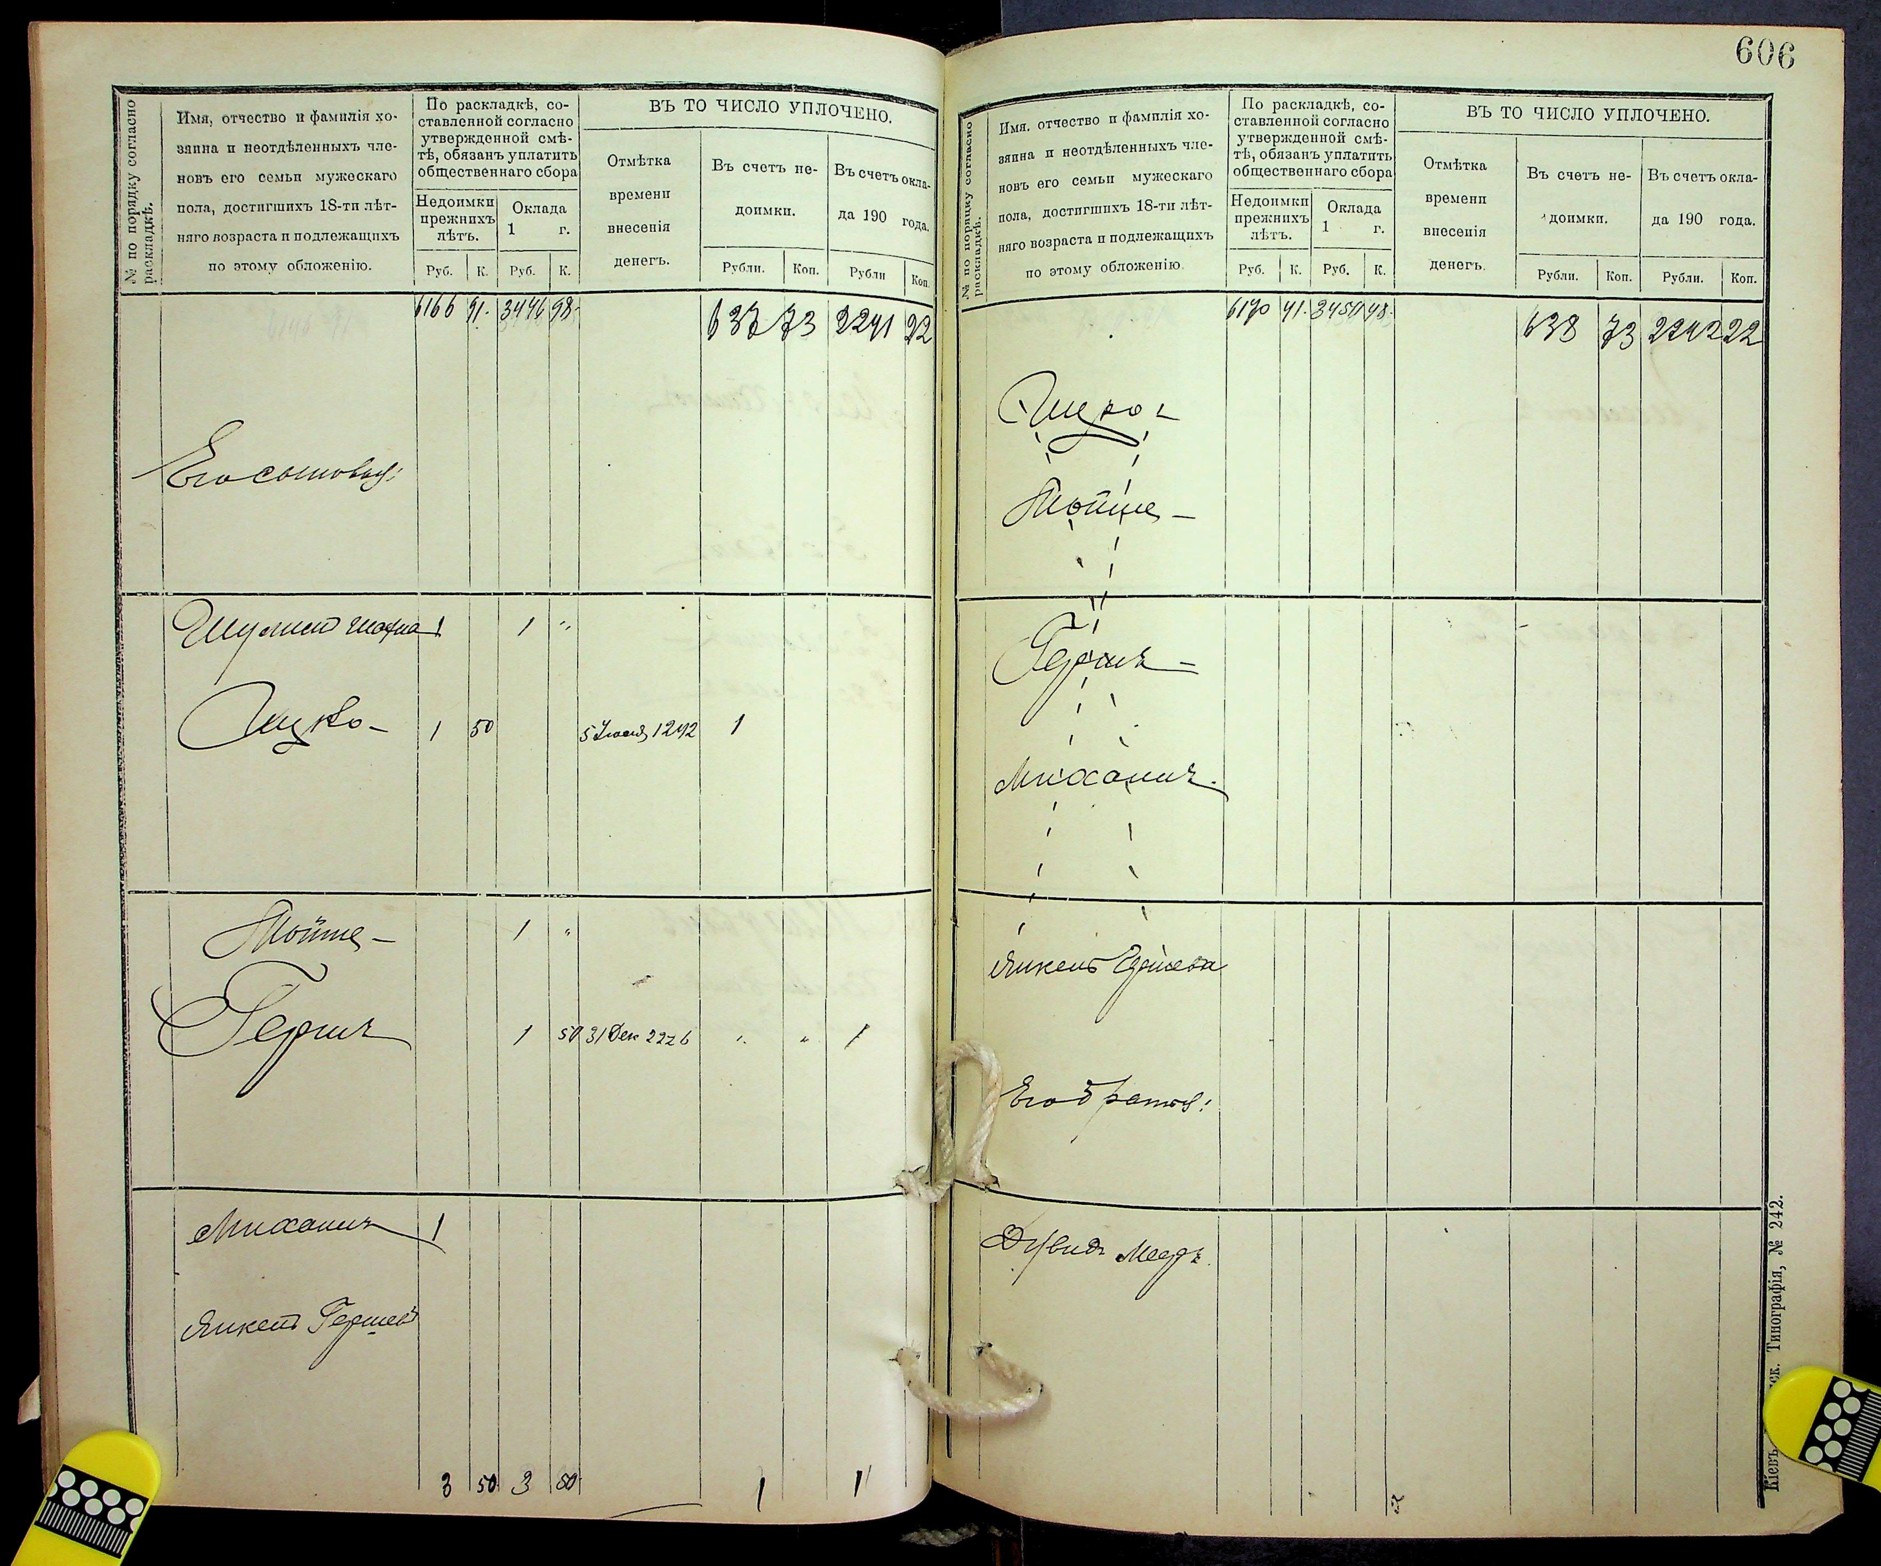 606
№ по порядку согласно
раскладкѣ.
Имя, отчество и фамилія хо-
зяина и неотдѣленныхъ чле-
новъ его семьи мужескаго
пола, достигшихъ 18-ти лѣт-
няго возраста и подлежащихъ
по этому обложенію.
По раскладкѣ, со-
ставленной согласно
утвержденной смѣ-
тѣ, обязанъ уплатить
общественнаго сбора
Недоимки
прежнихъ
лѣтъ.
Оклада
1 г.
Руб. К. Руб. К.
ВЪ ТО ЧИСЛО УПЛОЧЕНО.
Отмѣтка
времени
внесенія
денегъ.
Въ счетъ не-
доимки.
Въ счетъ окла-
да 190 года.
Рубли. Коп. Рубли Коп.
6166 91. 3446 98. 637 73 2241 22
Его сыновья:
1 1 "
Ицко- 1 50 5 1242 1
Мойше- 1 "
Гершъ 1 50 31 Дек 2226 " " 1
Михаиль 1
Янкель Гершев
3 50 3 50 1 1
№ по порядку согласно
раскладкѣ.
Имя, отчество и фамилія хо-
зяина и неотдѣленныхъ чле-
новъ его семьи мужескаго
пола, достигшихъ 18-ти лѣт-
няго возраста и подлежащихъ
по этому обложенію.
По раскладкѣ, со-
ставленной согласно
утвержденной смѣ-
тѣ, обязанъ уплатить
общественнаго сбора
Недоимки
прежнихъ
лѣтъ.
Оклада
1 г.
Руб. К. Руб. К.
ВЪ ТО ЧИСЛО УПЛОЧЕНО.
Отмѣтка
времени
внесенія
денегъ.
Въ счетъ не-
доимки.
Въ счетъ окла-
да 190 года.
Рубли. Коп. Рубли. Коп.
6170 41. 3450 48. 638 73 2242 22
Ицко-
Мойше-
Гершъ-
Михаиль.
Янкель
Его братья:
Дувидъ Меер
Кіевъ. Типографія, № 242.